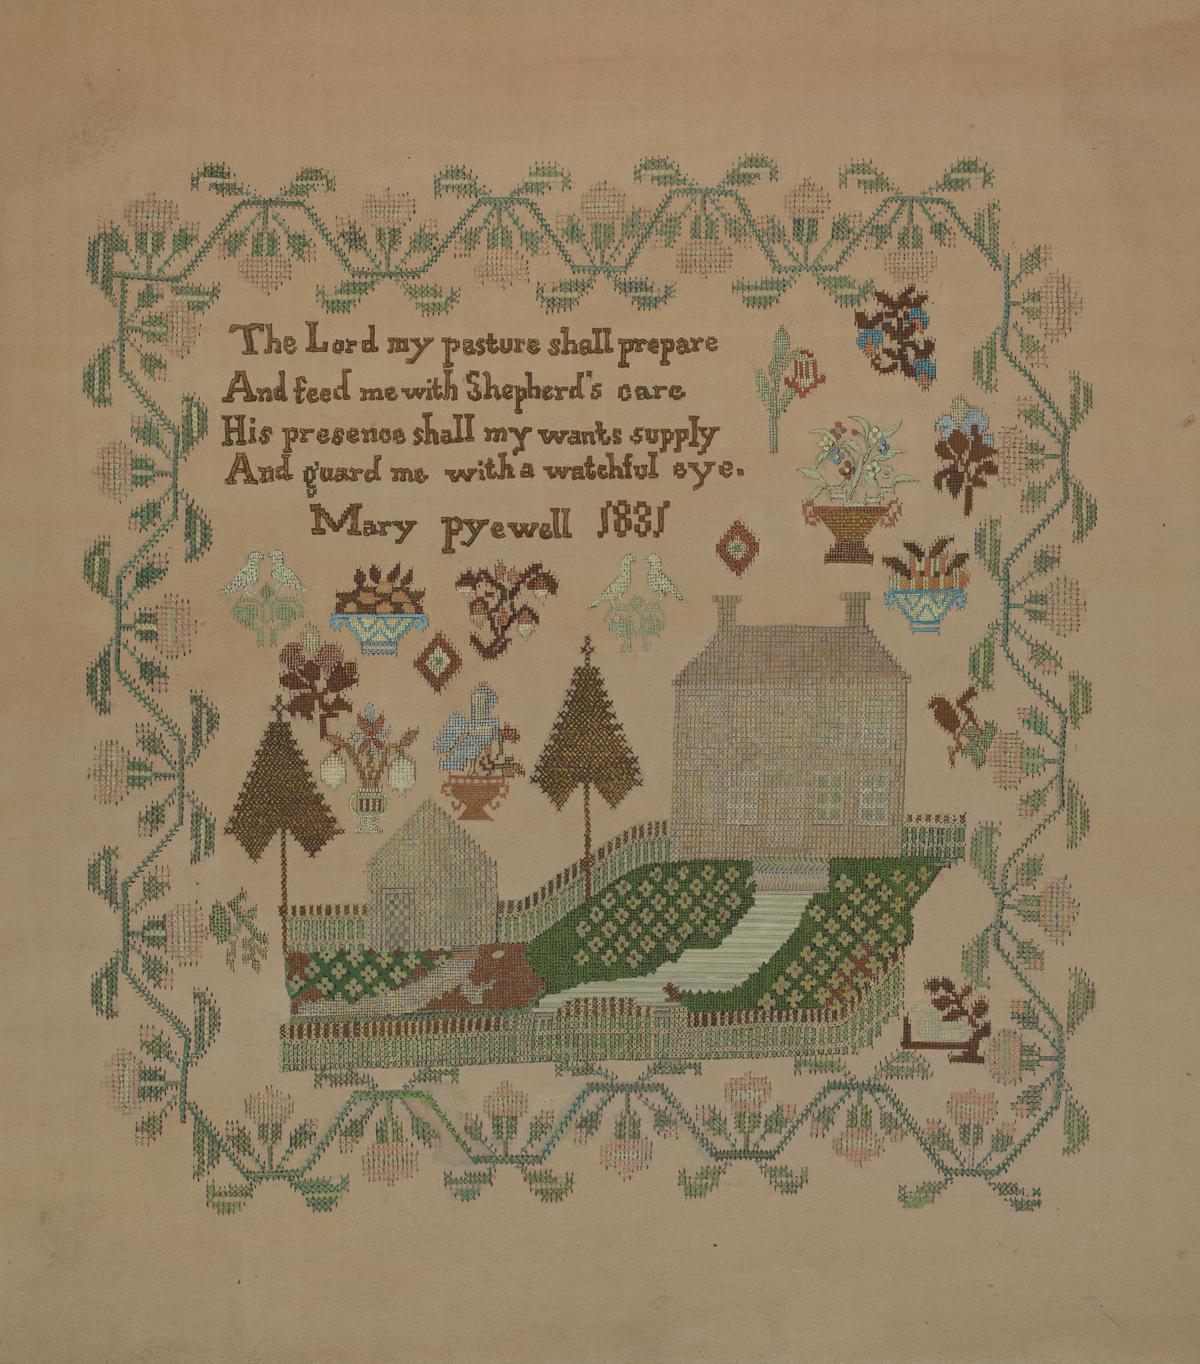 The Lord my pasture shall prepare
And feed me with Shepherd's care
His presence shall my wants supply
And guard me with a watchful eye.
Mary pyewell 1831